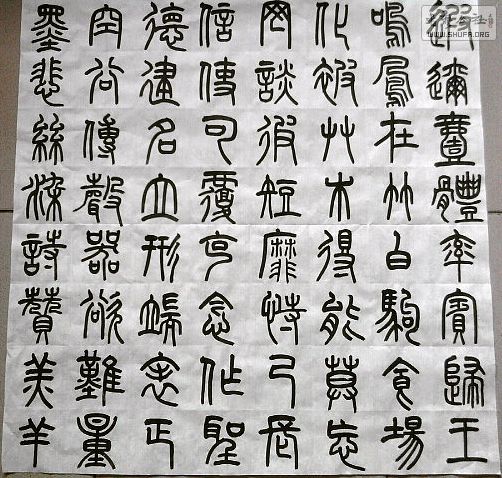 遐邇壹體率賓歸王
鳴鳳在竹白駒食場
化被艸木得能莫忘
罔談彼短靡恃己長
信使可覆克念作聖
德建名立形端表正
空谷傳聲器欲難量
墨悲絲染詩贊羔羊
WWW.SHUFA.ORG